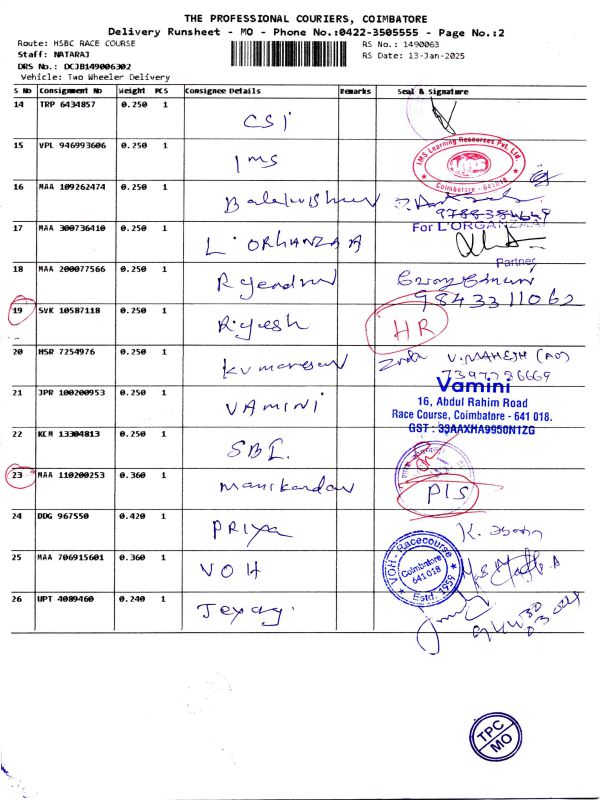 THE PROFESSIONAL COURIERS, COIMBATORE
Delivery Runsheet - MO - Phone No.:0422-3505555 - Page No.:2
Route: HSBC RACE COURSE
RS No.: 1490063
Staff: NATARAJ
RS Date: 13-Jan-2025
DRS No.: DCJB149006302
Vehicle: Two Wheeler Delivery
S No Consignment No Weight PCS Consignee Details Remarks Seal & Signature
14 TRP 6434857 0.250 1 CSI
15 VPL 946993606 0.250 1 IMS
IMS Learning Resources Pvt. Ltd
Coimbatore - 641 018
16 MAA 109262474 0.250 1
17 MAA 300736410 0.250 1 L'ORGHANZAA
For L'ORGANZAA
Partner
18 MAA 200077566 0.250 1
9843311062
19 SVK 10587118 0.250 1 Rijesh HR
20 HSR 7254976 0.250 1 Kumaresan V. MAHESH
21 JPR 100200953 0.250 1 VAMINI
Vamini
16, Abdul Rahim Road
Race Course, Coimbatore - 641 018.
GST : 33AAXHA9950N1ZG
22 KCM 13304813 0.250 1 SBI
23 MAA 110200253 0.360 1 Manikandan PIS
24 DDG 967550 0.420 1 PRIYA
25 MAA 706915601 0.360 1 VOH
VOH - Racecourse
Coimbatore
641 018
Estd. 1959
26 UPT 4089460 0.240 1
TPC
MO